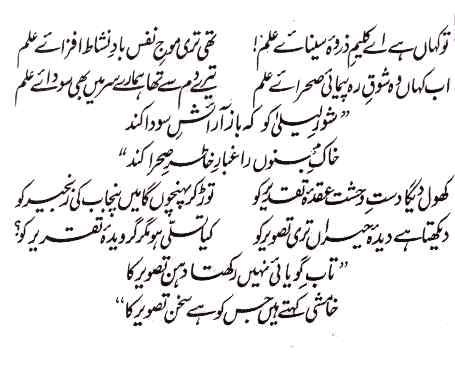 تو کہاں ہے اے کلیمِ ذروۂ سینائے علم! تھی تری موجِ نفس بادِ نشاط افزائے علم
اب کہاں وہ شوقِ رہ پیمائیِ صحرائے علم تیرے دم سے تھا ہمارے سر میں بھی سودائے علم
”شورِ لیلیٰ کو کہ باز آرائشِ سودا کند
خاکِ مجنوں را غبارِ خاطرِ صحرا کند“
کھول دیگا دستِ وحشت عقدۂ تقدیر کو توڑ کر پہنچوں گا میں پنجاب کی زنجیر کو
دیکھتا ہے دیدۂ حیراں تری تصویر کو کیا تسلّی ہو مگر گرویدۂ تقریر کو؟
”تابِ گویائی نہیں رکھتا دہن تصویر کا
خامشی کہتے ہیں جس کو ہے سخن تصویر کا“